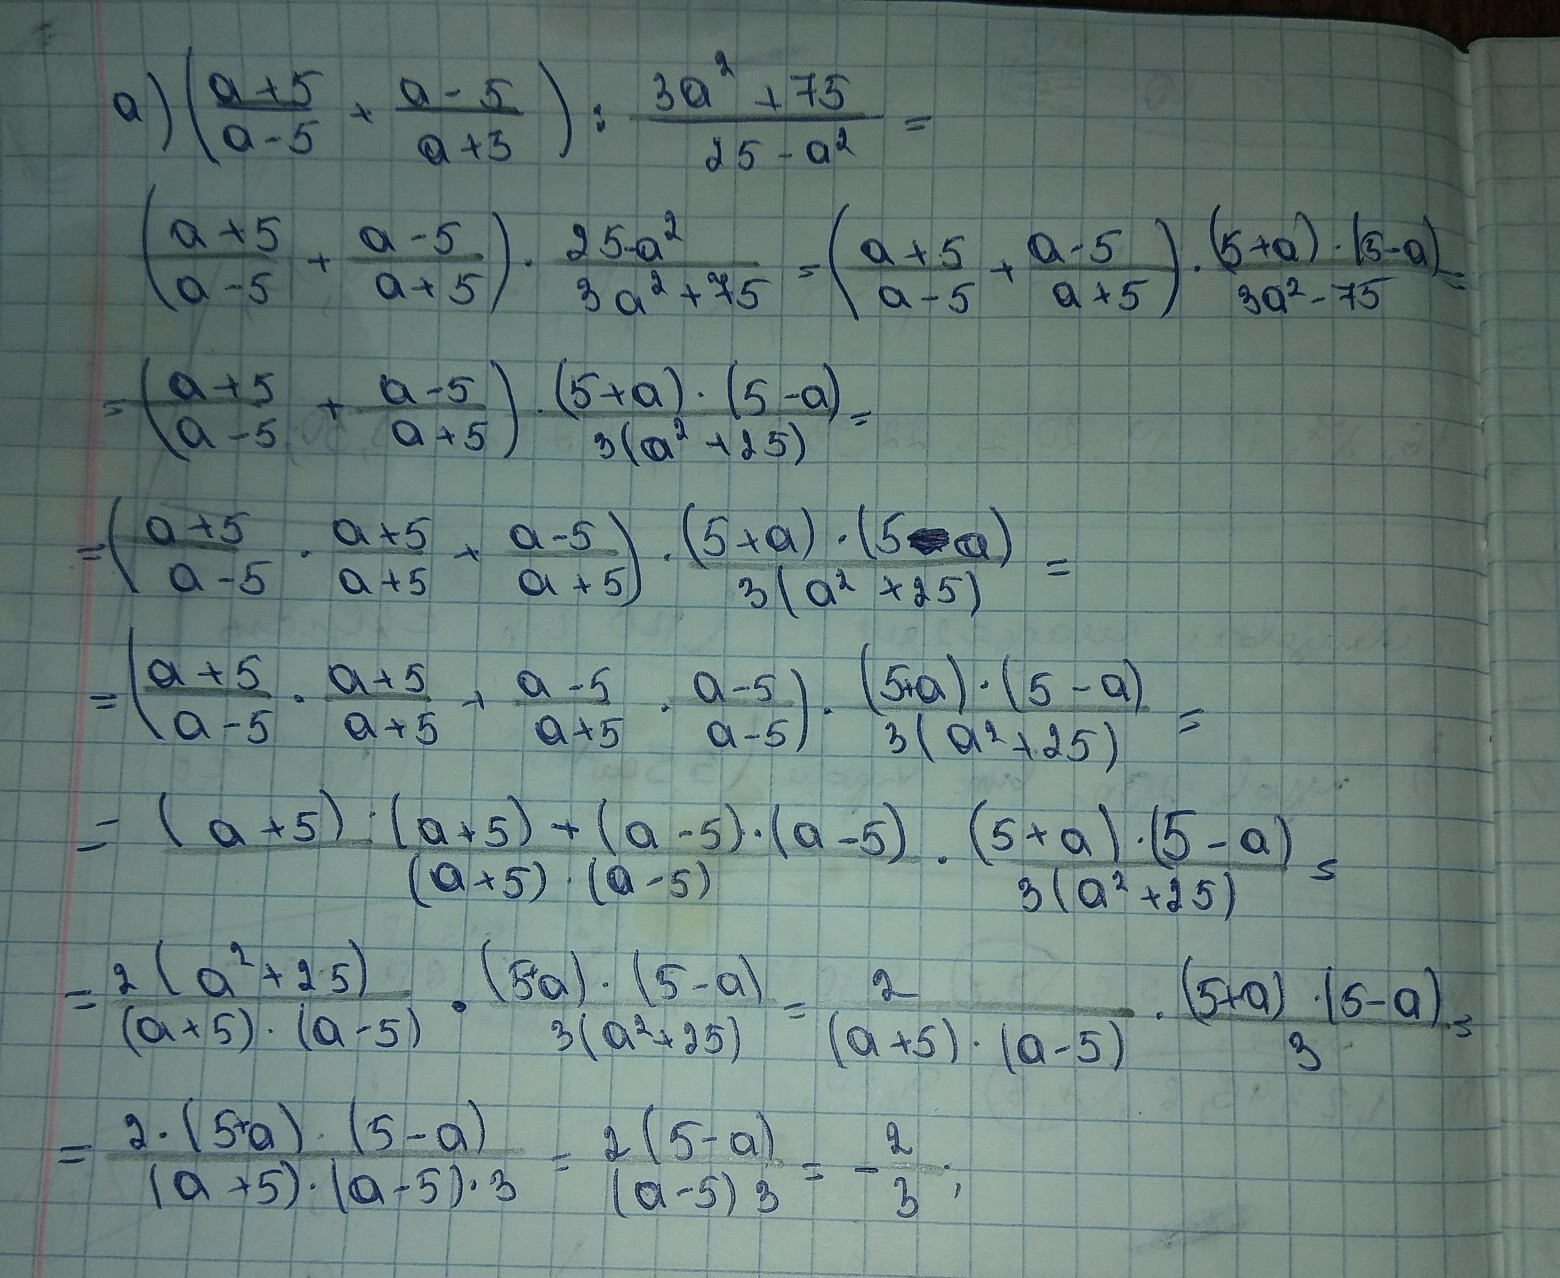 a) ((a+5)/(a-5) + (a-5)/(a+3)) : (3a² + 75)/(25 - a²) =
((a+5)/(a-5) + (a-5)/(a+5)) · (25-a²)/(3a²+75) = ((a+5)/(a-5) + (a-5)/(a+5)) · ((5+a)·(5-a))/(3a²-75) =
= ((a+5)/(a-5) + (a-5)/(a+5)) · ((5+a)·(5-a))/(3(a²+25)) =
= ((a+5)/(a-5) · (a+5)/(a+5) + (a-5)/(a+5)) · ((5+a)·(5-a))/(3(a²+25)) =
= ((a+5)/(a-5) · (a+5)/(a+5) + (a-5)/(a+5) · (a-5)/(a-5)) · ((5+a)·(5-a))/(3(a²+25)) =
= ((a+5)·(a+5)+(a-5)·(a-5))/((a+5)·(a-5)) · ((5+a)·(5-a))/(3(a²+25)) =
= (2(a²+25))/((a+5)·(a-5)) · ((5+a)·(5-a))/(3(a²+25)) = 2/((a+5)·(a-5)) · ((5+a)·(5-a))/3 =
= (2·(5+a)·(5-a))/((a+5)·(a-5)·3) = (2(5-a))/((a-5)3) = -2/3;